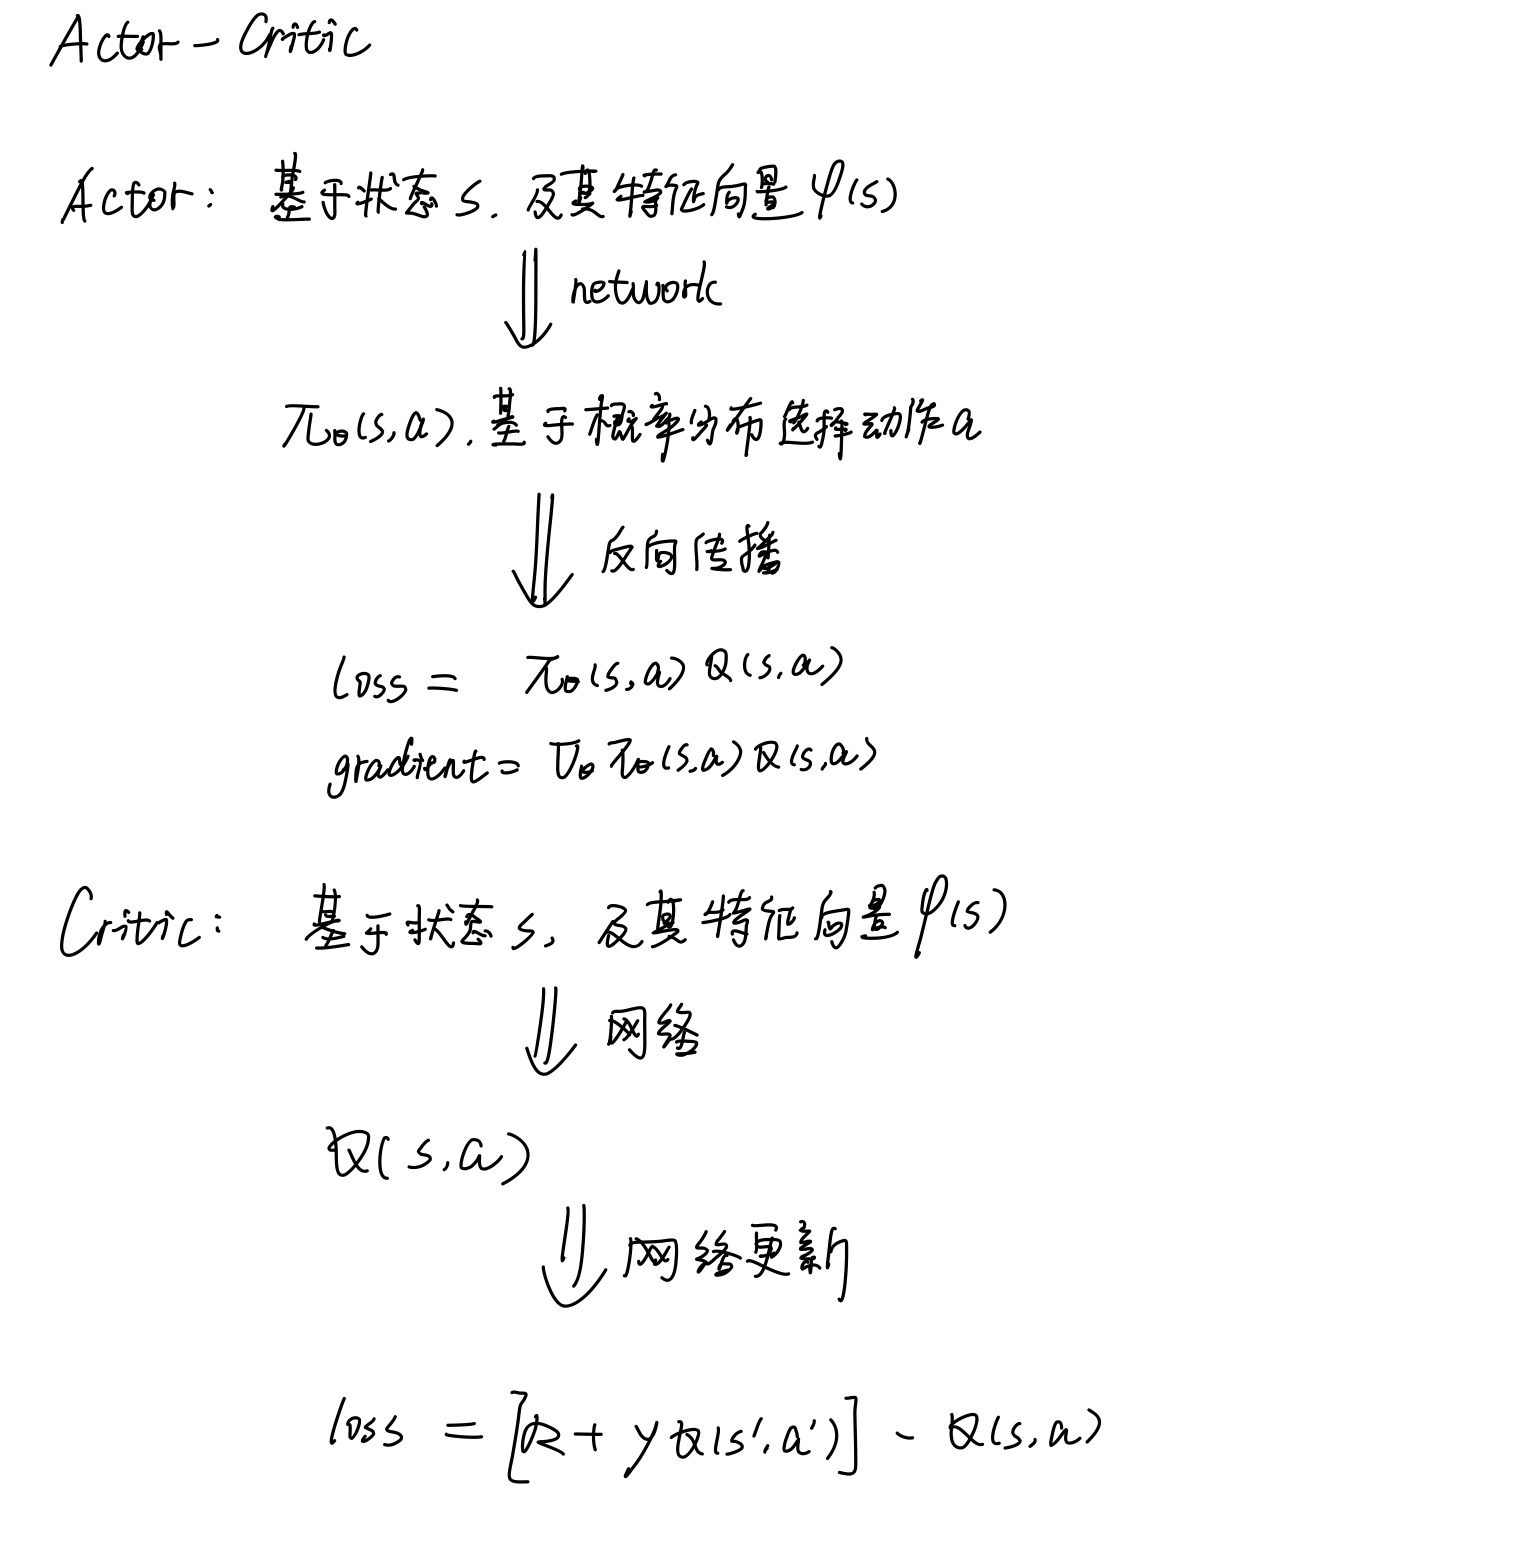 Actor - Critic
Actor: 基于状态 s. 及其特征向量 φ(s)
⇓ network
π_θ(s,a). 基于概率分布选择动作 a
⇓ 反向传播
loss = π_θ(s,a) Q(s,a)
gradient = ∇_θ π_θ(s,a) Q(s,a)
Critic: 基于状态 s, 及其特征向量 φ(s)
⇓ 网络
Q(s,a)
⇓ 网络更新
loss = [R + γQ(s',a')] - Q(s,a)